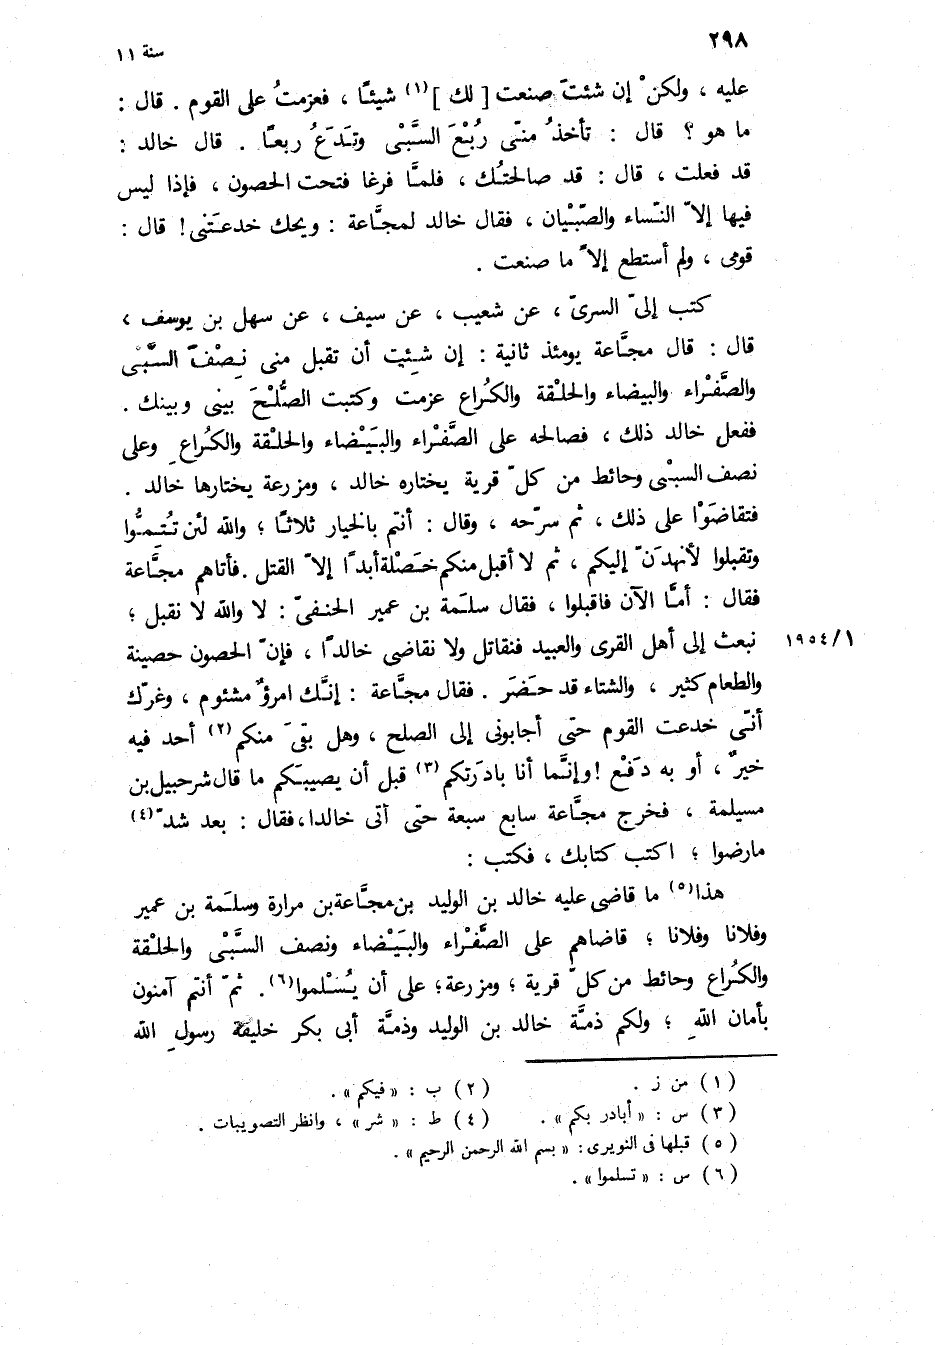 ٢٩٨
سنة ١١
عليه ، ولكنْ إن شئتَ صنعت [ لك ](١) شيئًا ، فعزمتُ على القوم . قال :
ما هو ؟ قال : تأخذُ منّى رُبْعَ السَّبْى وتَدَعُ ربعًا . قال خالد :
قد فعلت ، قال : قد صالحتُك ، فلمَّا فرغا فتحت الحصون ، فإذا ليس
فيها إلاّ النّساء والصّبْيان ، فقال خالد لمجَّاعة : ويحك خدعتَنى ! قال :
قومى ، ولم أستطع إلاّ ما صنعت .
كتب إلىّ السرىّ ، عن شعيب ، عن سيف ، عن سهل بن يوسف ،
قال : قال مجَّاعة يومئذ ثانية : إن شئت أن تقبل منى نِصْفَ السَّبْى
والصَّفْراء والبيضاء والحلْقة والكُراع عزمت وكتبت الصُّلْحَ بينى وبينك .
ففعل خالد ذلك ، فصالحه على الصَّفْراء والبَيْضاء والحلْقة والكُراعِ وعلى
نصف السبْى وحائط من كلّ قرية يختاره خالد ، ومزرعة يختارها خالد .
فتقاضَوْا على ذلك ، ثم سرّحه ، وقال : أنتم بالخيار ثلاثًا ؛ والله لئن تُتِمُّوا
وتقبلوا لأنهدَنّ إليكم ، ثم لا أقبل منكم خَصْلة أبدًا إلاّ القتل . فأتاهم مجَّاعة
فقال : أمَّا الآن فاقبلوا ، فقال سلَمة بن عمير الحنفىّ : لا والله لا نقبل ؛
نبعث إلى أهل القرى والعبيد فنقاتل ولا نقاضى خالدًا ، فإنّ الحصون حصينة
١٩٥٤/١
والطعام كثير ، والشتاء قد حَضَر . فقال مجَّاعة : إنَّك امرؤٌ مشئوم ، وغرّك
أنّى خدعت القوم حتى أجابونى إلى الصلح ، وهل بقىَ منكم(٢) أحد فيه
خيرٌ ، أو به دَفْع ! وإنَّما أنا بادَرتكم(٣) قبل أن يصيبَكم ما قال شرحبيل بن
مسيلمة ، فخرج مجَّاعة سابع سبعة حتى أتى خالدا ، فقال : بعد شدّ(٤)
ما رضوا ؛ اكتب كتابك ، فكتب :
هذا(٥) ما قاضى عليه خالد بن الوليد بن مجَّاعة بن مرارة وسلَمة بن عمير
وفلانا وفلانا ؛ قاضاهم على الصَّفْراء والبَيْضاء ونصف السَّبْى والحلْقة
والكُراع وحائط من كلّ قرية ؛ ومزرعة ؛ على أن يُسْلموا(٦) . ثمّ أنتم آمنون
بأمان اللهِ ؛ ولكم ذمَّة خالد بن الوليد وذمَّة أبى بكر خليفة رسولِ الله
(١) من ز .
(٢) ب : « فيكم » .
(٣) س : « أبادر بكم » .
(٤) ط : « شر » ، وانظر التصويبات .
(٥) قبلها فى النويرى : « بسم الله الرحمن الرحيم » .
(٦) س : « تسلموا » .